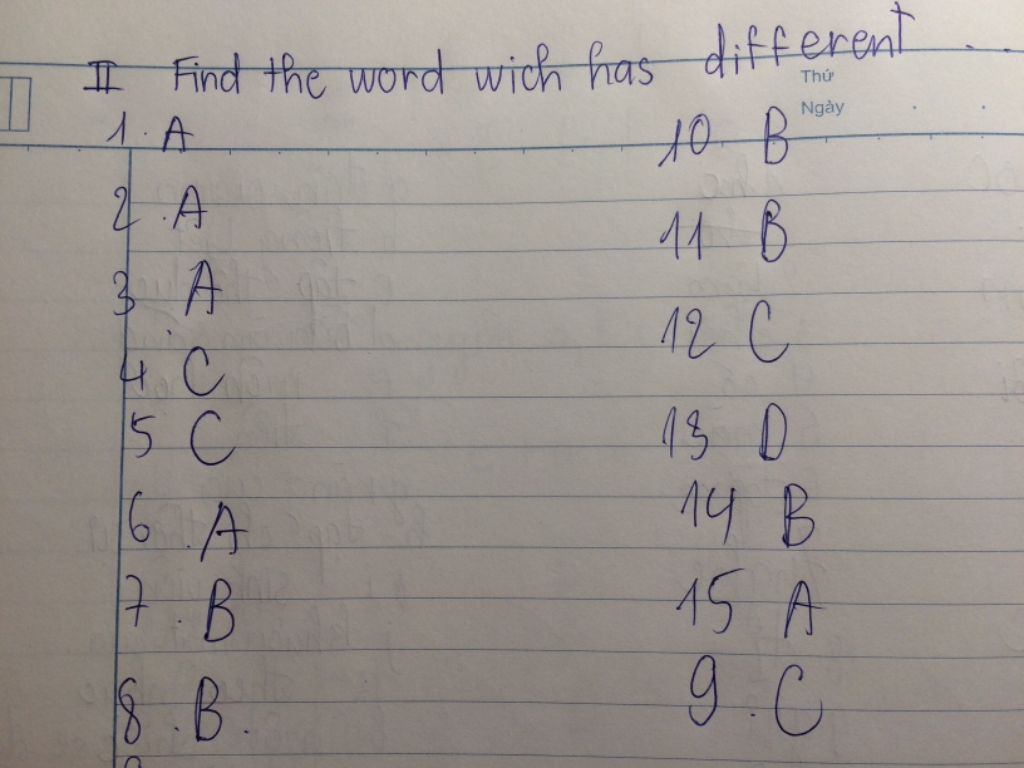 II Find the word wich has different ...
Thứ
Ngày
1. A
2. A
3 A
4 C
5 C
6. A
7. B
8. B.
10 B
11 B
12 C
13 D
14 B
15 A
9. C